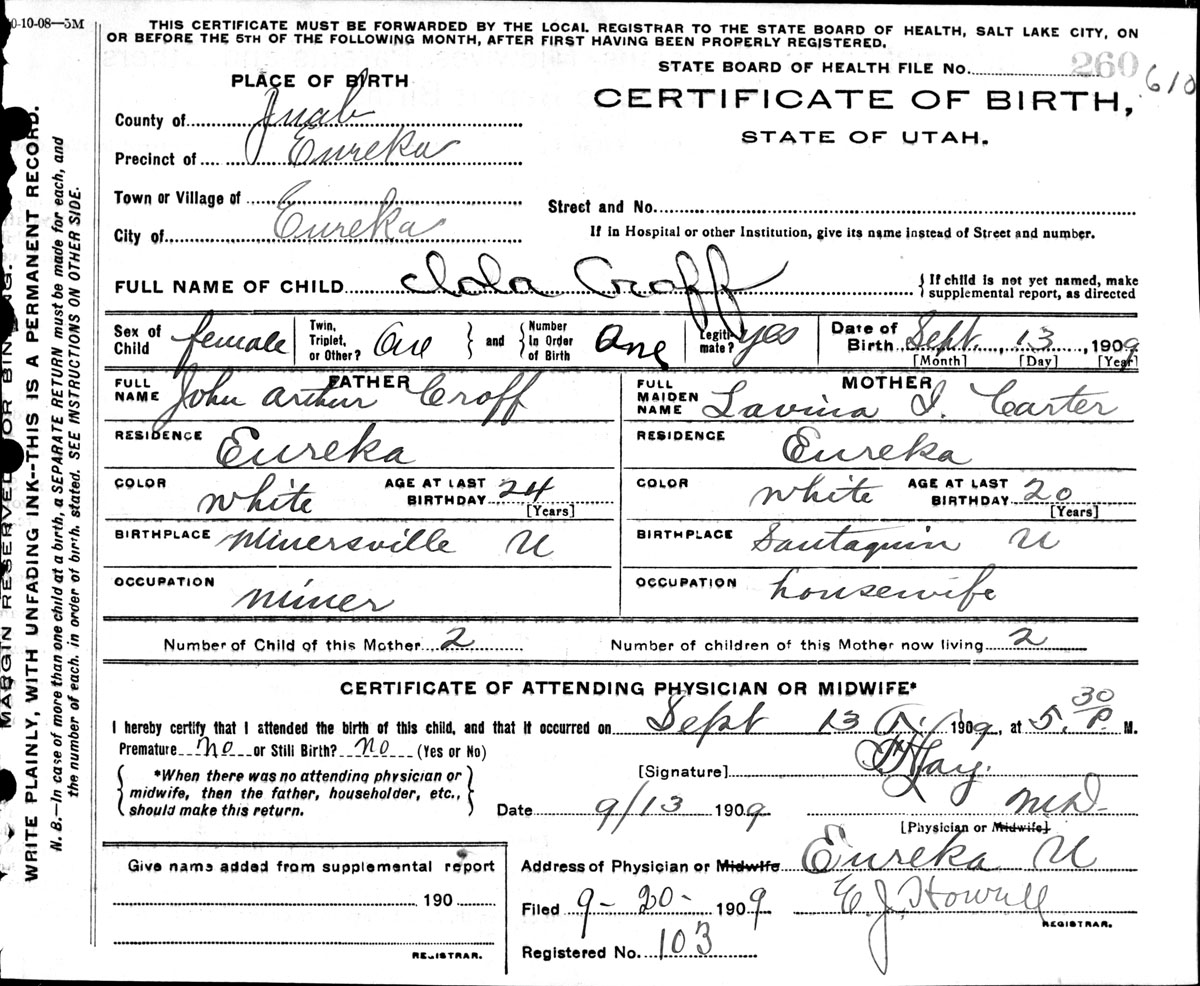 0-10-08—5M
THIS CERTIFICATE MUST BE FORWARDED BY THE LOCAL REGISTRAR TO THE STATE BOARD OF HEALTH, SALT LAKE CITY, ON
OR BEFORE THE 5TH OF THE FOLLOWING MONTH, AFTER FIRST HAVING BEEN PROPERLY REGISTERED.
STATE BOARD OF HEALTH FILE No. 260 610
PLACE OF BIRTH
CERTIFICATE OF BIRTH,
STATE OF UTAH.
County of Juab
Precinct of Eureka
Town or Village of
City of Eureka
Street and No.
If in Hospital or other Institution, give its name instead of Street and number.
FULL NAME OF CHILD Iola Croff
{ If child is not yet named, make
supplemental report, as directed
Sex of Child female
Twin, Triplet, or Other? One } and { Number In Order of Birth One
Legiti-mate? yes
Date of Birth Sept 13, 1909
[Month] [Day] [Year]
FATHER
FULL NAME John Arthur Croff
RESIDENCE Eureka
COLOR White
AGE AT LAST BIRTHDAY 24
[Years]
BIRTHPLACE Minersville U
OCCUPATION miner
MOTHER
FULL MAIDEN NAME Lavina I. Carter
RESIDENCE Eureka
COLOR White
AGE AT LAST BIRTHDAY 20
[Years]
BIRTHPLACE Santaquin U
OCCUPATION housewife
Number of Child of this Mother 2
Number of children of this Mother now living 2
CERTIFICATE OF ATTENDING PHYSICIAN OR MIDWIFE*
I hereby certify that I attended the birth of this child, and that it occurred on Sept 13 1909, at 5.30 P. M.
Premature No or Still Birth? No (Yes or No)
{ *When there was no attending physician or
midwife, then the father, householder, etc.,
should make this return. }
[Signature]
Date 9/13 1909
M.D.
[Physician or Midwife]
Address of Physician or Midwife Eureka U
Filed 9-20- 1909
E. J. Howell
REGISTRAR.
Registered No. 103
Give name added from supplemental report
190
REGISTRAR.
MARGIN RESERVED FOR BINDING.
WRITE PLAINLY, WITH UNFADING INK--THIS IS A PERMANENT RECORD.
N. B.—In case of more than one child at a birth, a SEPARATE RETURN must be made for each, and
the number of each, in order of birth, stated. SEE INSTRUCTIONS ON OTHER SIDE.